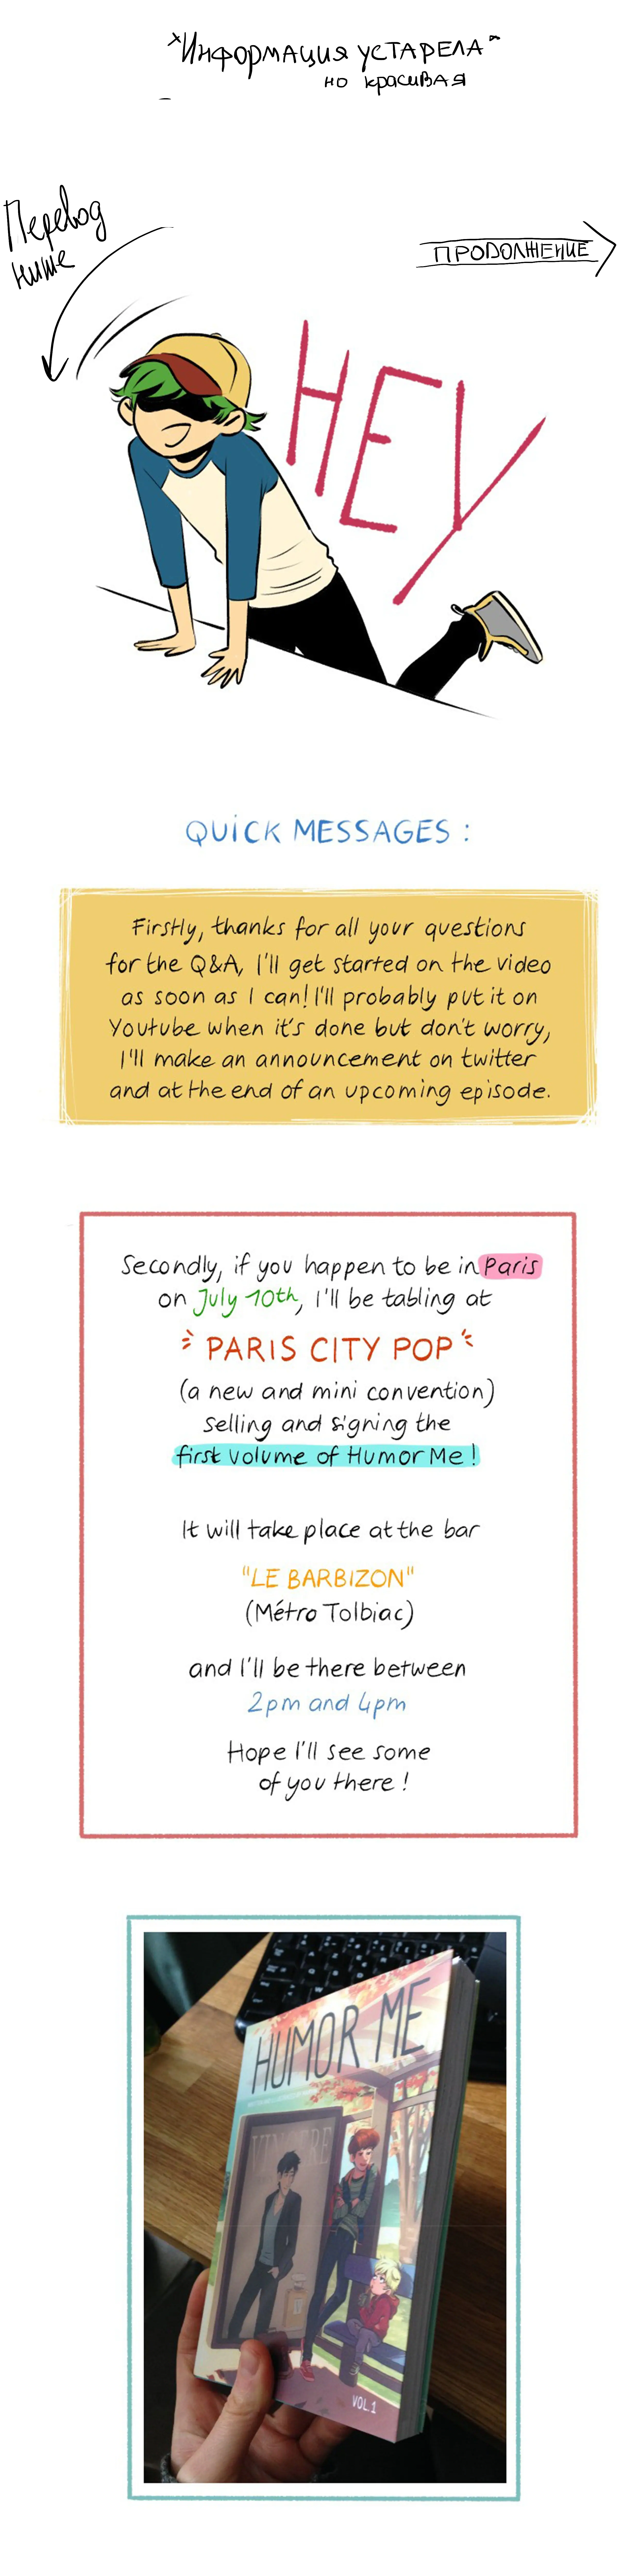 *Информация устарела*
но красивая
Перевод
ниже
ПРОДОЛЖЕНИЕ
HEY
QUICK MESSAGES :
Firstly, thanks for all your questions
for the Q&A, I'll get started on the video
as soon as I can! I'll probably put it on
Youtube when it's done but don't worry,
I'll make an announcement on twitter
and at the end of an upcoming episode.
Secondly, if you happen to be in Paris
on July 10th, I'll be tabling at
PARIS CITY POP
(a new and mini convention)
selling and signing the
first volume of Humor Me!
It will take place at the bar
"LE BARBIZON"
(Métro Tolbiac)
and I'll be there between
2pm and 4pm
Hope I'll see some
of you there!
HUMOR ME
VOL.1